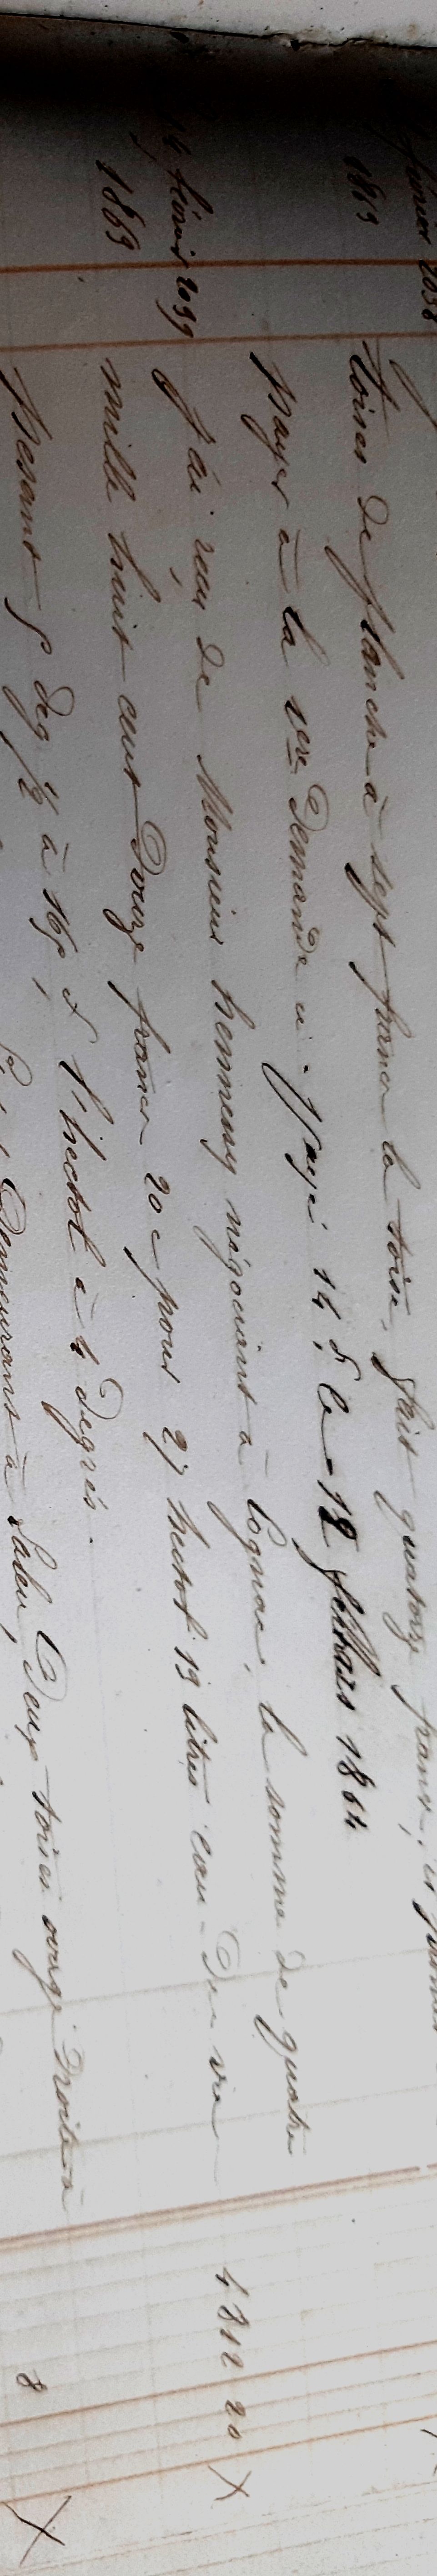 février 2038
1863
toises de planche à sept francs la toise, fait quatorze francs,
payer à la 1ere Demande ci - payé 14 f le 12 1864
février 2039 J'ai reçu de Monsieur hennessy négociant à Cognac, la somme de quatre
1863 mille huit cent Douze francs 20 c pour 27 hectol 19 litres eau-De vie 4812 20 X
pesant 5 Deg ½ à 165 f l'hectol à 4 Degrés.
Demeurant à Deux toises 8 X